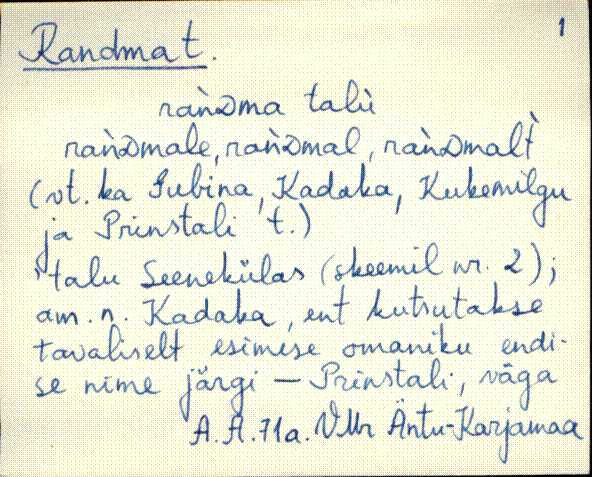 1
Randma t.
ràǹᴅma talù
ràǹᴅmale, ràǹᴅmal, ràǹᴅmalt̀
(vt. ka Gubina, Kadaka, Kukemilgu
ja Prinstali t.)
talu Seenekülas (skeemil nr. 2);
am. n. Kadaka, ent kutsutakse
tavaliselt esimese omaniku endi-
se nime järgi — Prinstali, väga
A. A. 71a. VMr Äntu-Karjamaa